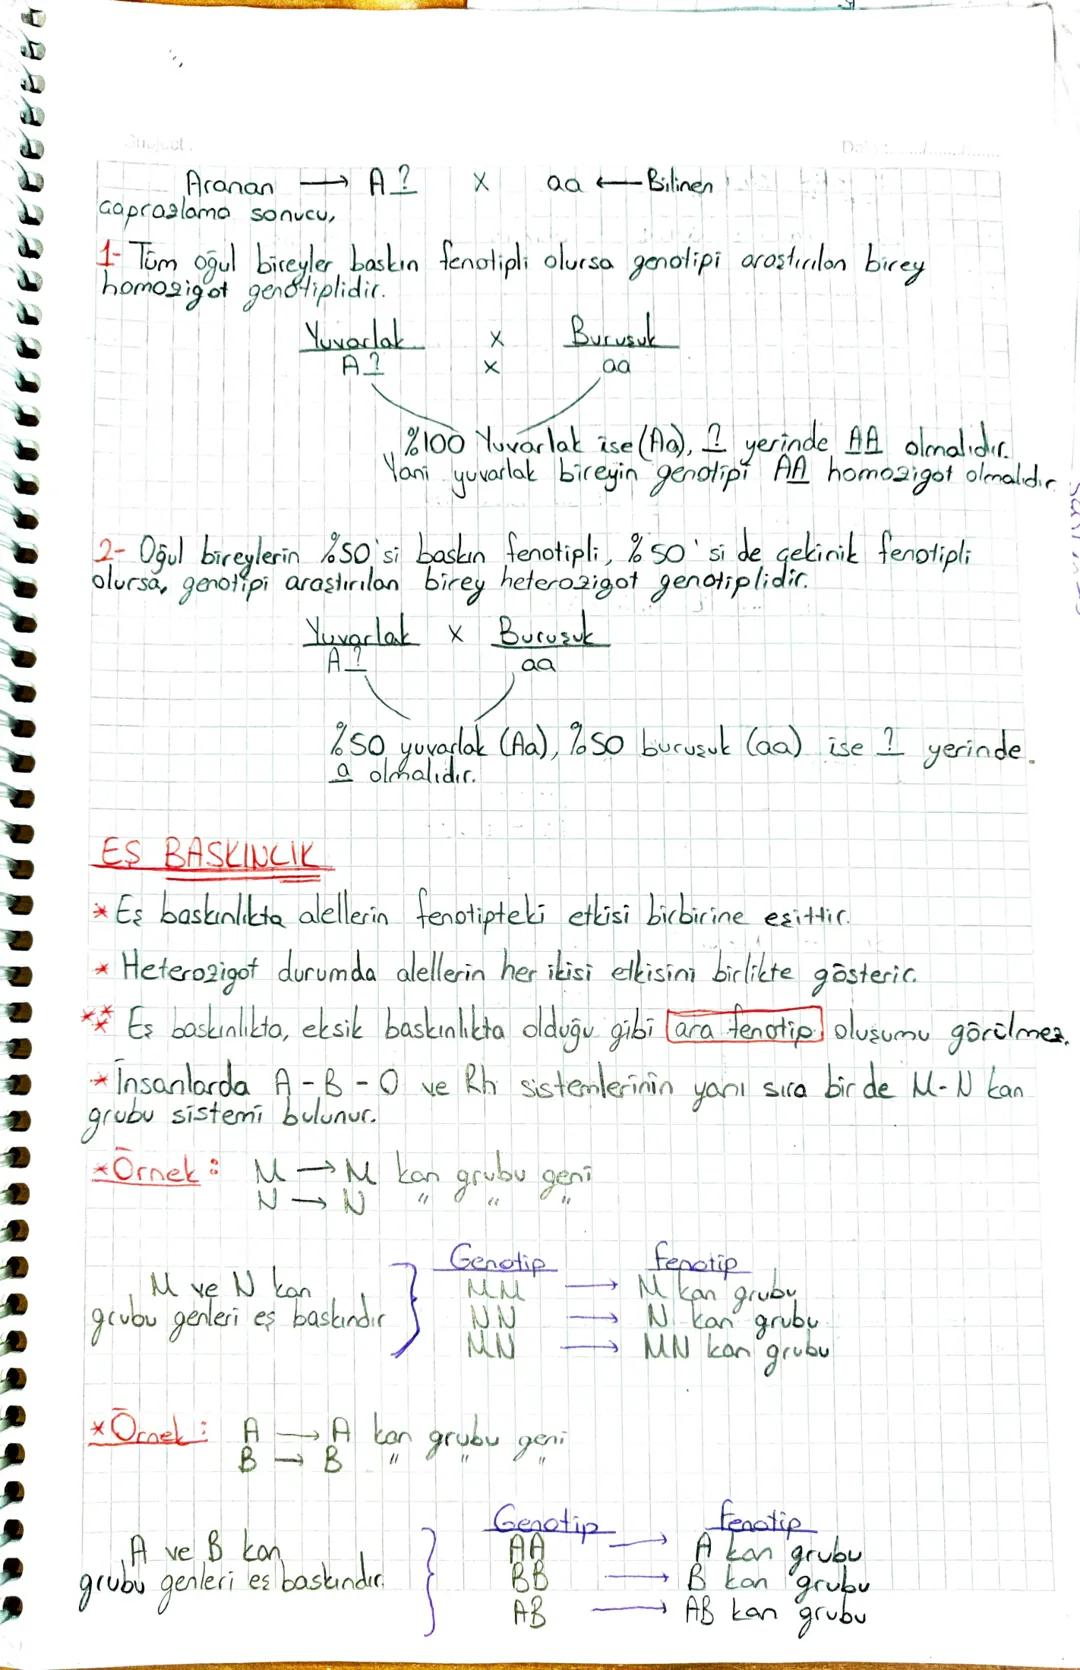 Subject :
Aranan → A ? x aa ← Bilinen
çaprazlama sonucu,
1- Tüm oğul bireyler baskın fenotipli olursa genotipi araştırılan birey
homozigot genotiplidir.
Yuvarlak x Buruşuk
A ? x aa
%100 Yuvarlak ise (Aa), ? yerinde AA olmalıdır.
Yani yuvarlak bireyin genotipi AA homozigot olmalıdır.
2- Oğul bireylerin %50'si baskın fenotipli, %50'si de çekinik fenotipli
olursa, genotipi araştırılan birey heterozigot genotiplidir.
Yuvarlak x Buruşuk
A ? aa
%50 yuvarlak (Aa), %50 buruşuk (aa) ise ? yerinde
a olmalıdır.
EŞ BASKINLIK
* Eş baskınlıkta alellerin fenotipteki etkisi birbirine eşittir.
* Heterozigot durumda alellerin her ikisi etkisini birlikte gösterir.
** Eş baskınlıkta, eksik baskınlıkta olduğu gibi ara fenotip oluşumu görülmez.
* İnsanlarda A-B-O ve Rh sistemlerinin yanı sıra bir de M-N kan
grubu sistemi bulunur.
* Örnek : M → M kan grubu geni
N → N " " "
Genotip Fenotip
M ve N kan MM → M kan grubu
grubu genleri eş baskındır NN → N kan grubu
MN → MN kan grubu
* Örnek : A → A kan grubu geni
B → B " " "
Genotip Fenotip
A ve B kan AA → A kan grubu
grubu genleri eş baskındır. BB → B kan grubu
AB → AB kan grubu